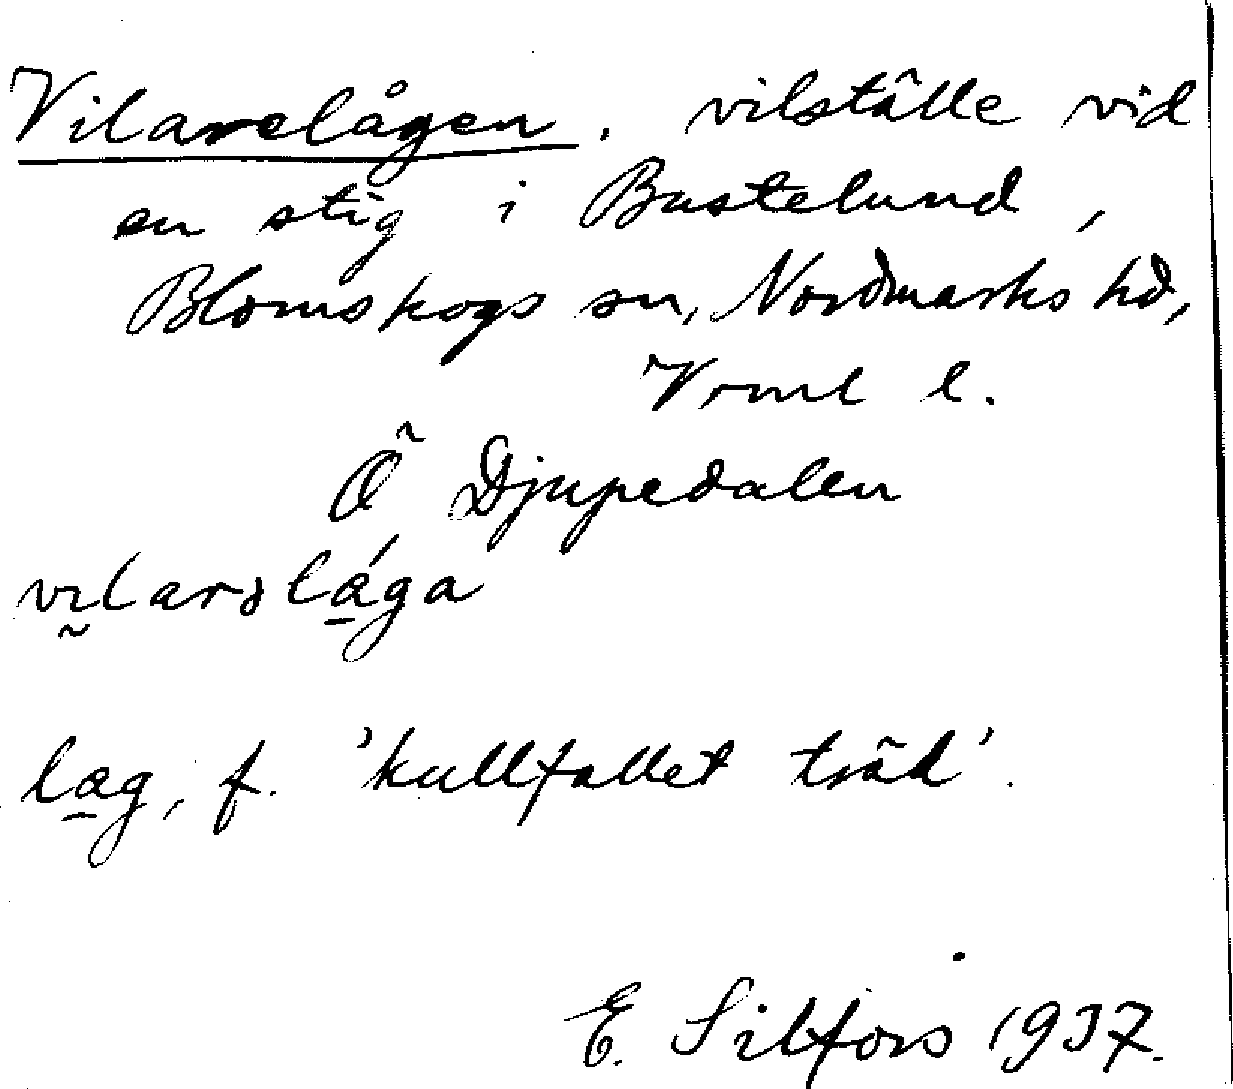 Vilarelågen. vilställe vid
en stig i Bustelund,
Blomskogs sn, Nordmarks hd,
Vrml l.
Ö Djupedalen
vilarəlåga
låg, f. 'kullfallet träd'.
E. Silfors 1937.